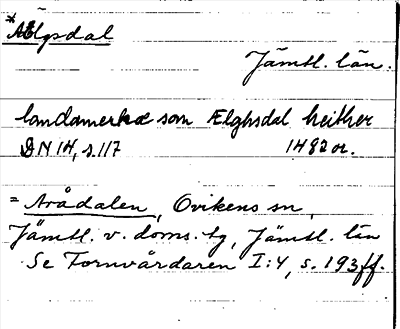 *Älgsdal
Jämtl. län.
landamerkæ som Ælghsdal heither
DN 14, s. 117 1482 or.
= Arådalen, Ovikens sn,
Jämtl. v. doms. tg, Jämtl. län
Se Fornvårdaren I:4, s. 193 ff.